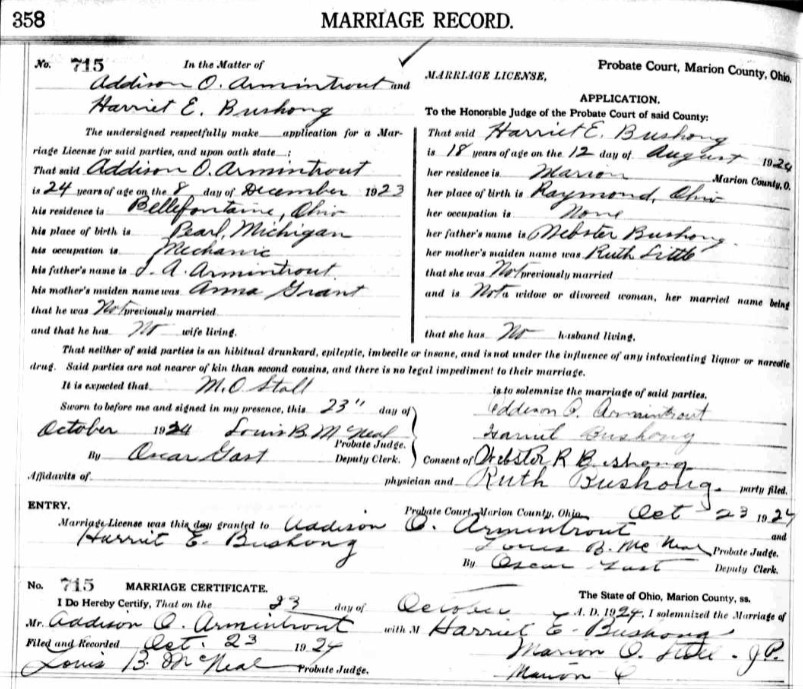 358 MARRIAGE RECORD.
No. 715 In the Matter of
Addison O. Armintrout and
Harriet E. Bushong
The undersigned respectfully make application for a Mar-
riage License for said parties, and upon oath state:
That said Addison O. Armintrout
is 24 years of age on the 8 day of December 1923
his residence is Bellefontaine, Ohio
his place of birth is Pearl, Michigan
his occupation is Mechanic
his father's name is J. A. Armintrout
his mother's maiden name was Anna Grant
that he was Not previously married
and that he has No wife living.
MARRIAGE LICENSE, Probate Court, Marion County, Ohio,
APPLICATION.
To the Honorable Judge of the Probate Court of said County:
That said Harriet E. Bushong
is 18 years of age on the 12 day of August 1924
her residence is Marion Marion County, O.
her place of birth is Raymond, Ohio
her occupation is None
her father's name is Webster Bushong
her mother's maiden name was Ruth Little
that she was Not previously married
and is Not a widow or divorced woman, her married name being
that she has No husband living.
That neither of said parties is an hibitual drunkard, epileptic, imbecile or insane, and is not under the influence of any intoxicating liquor or narcotic
drug. Said parties are not nearer of kin than second cousins, and there is no legal impediment to their marriage.
It is expected that M. O Stall is to solemnize the marriage of said parties.
Sworn to before me and signed in my presence, this 23" day of
October 1924 Louis B. McNeal
Probate Judge.
By Oscar Gast Deputy Clerk.
Addison O. Armintrout
Harriet Bushong
Consent of Webster R Bushong
Affidavits of physician and Ruth Bushong. party filed.
ENTRY. Probate Court, Marion County, Ohio, Oct 23 1924
Marriage License was this day granted to Addison O. Armintrout and
Harriet E. Bushong Louis B. McNeal Probate Judge.
By Oscar Gast Deputy Clerk.
No. 715 MARRIAGE CERTIFICATE. The State of Ohio, Marion County, ss.
I Do Hereby Certify, That on the 23 day of October A. D. 1924, I solemnized the Marriage of
Mr. Addison O. Armintrout with M Harriet E. Bushong
Filed and Recorded Oct. 23 1924 Marion O. - J.P.
Louis B. McNeal Probate Judge. Marion O